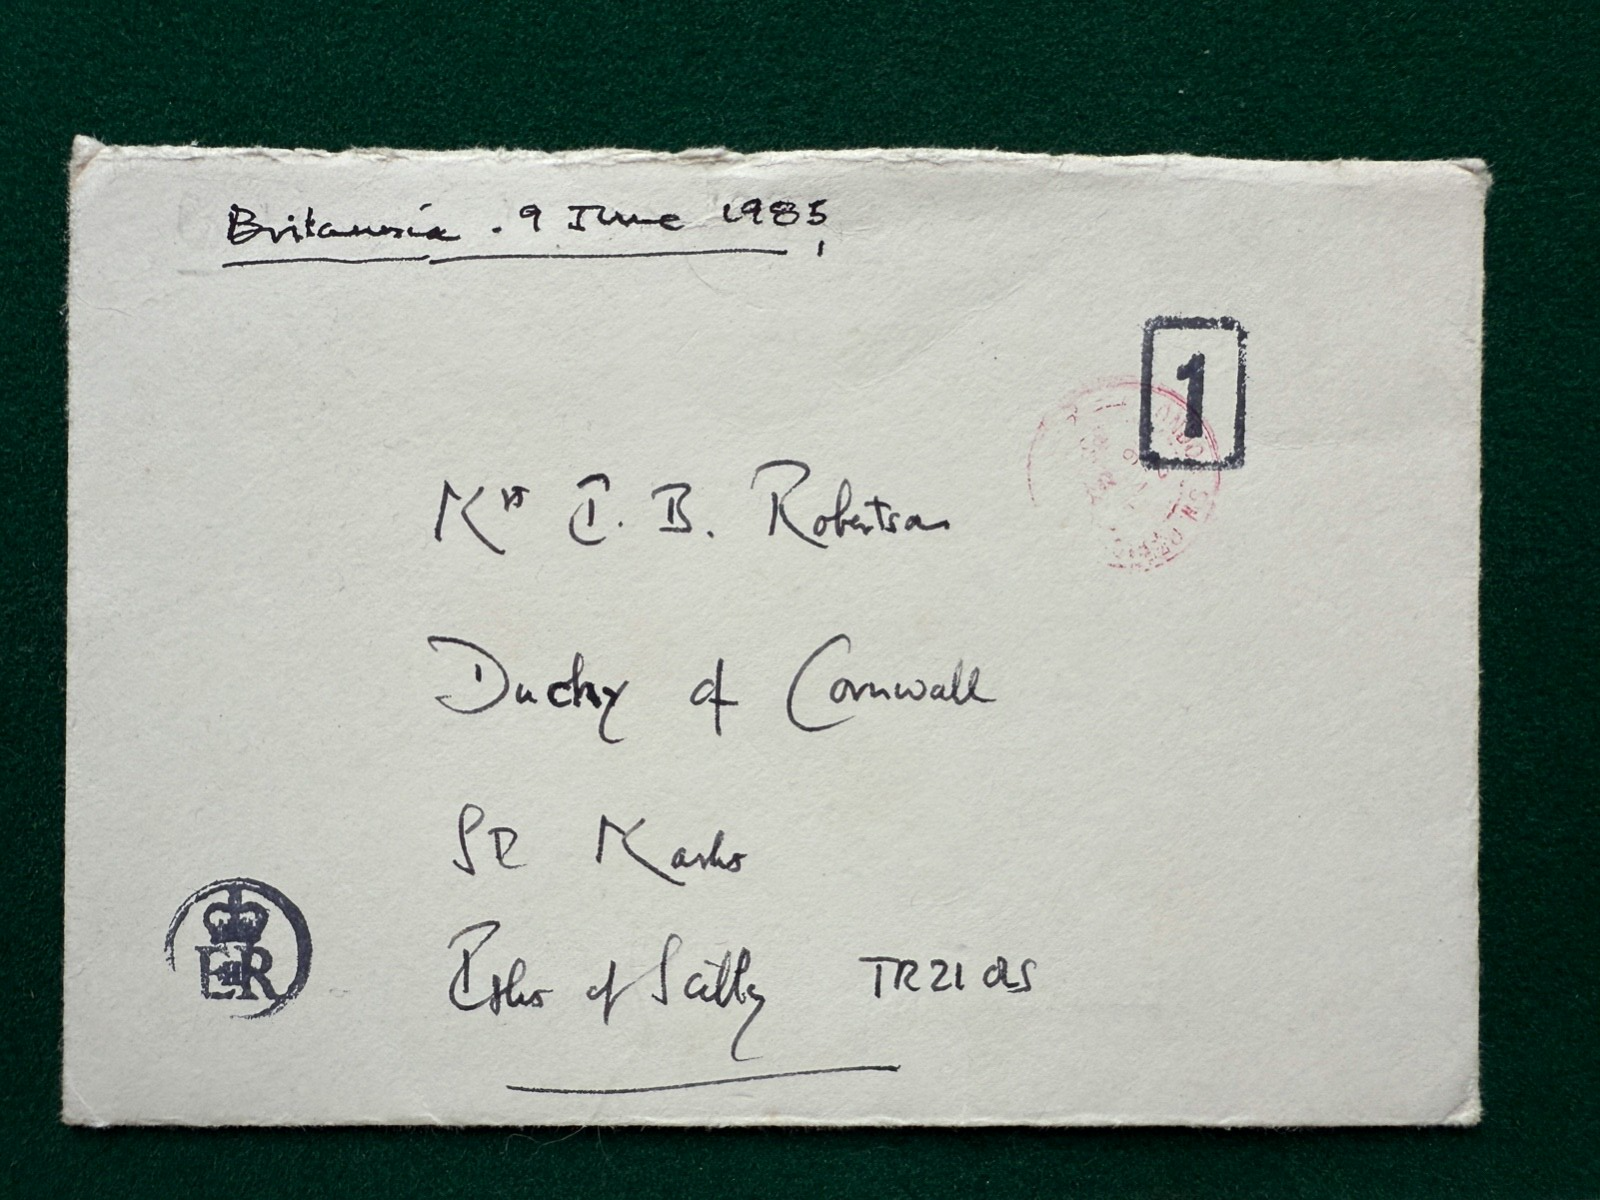 Britannia . 9 June 1985
1
Mrs C. B. Robertson
Duchy of Cornwall
St Marks
Isles of Scilly TR21
EIIR